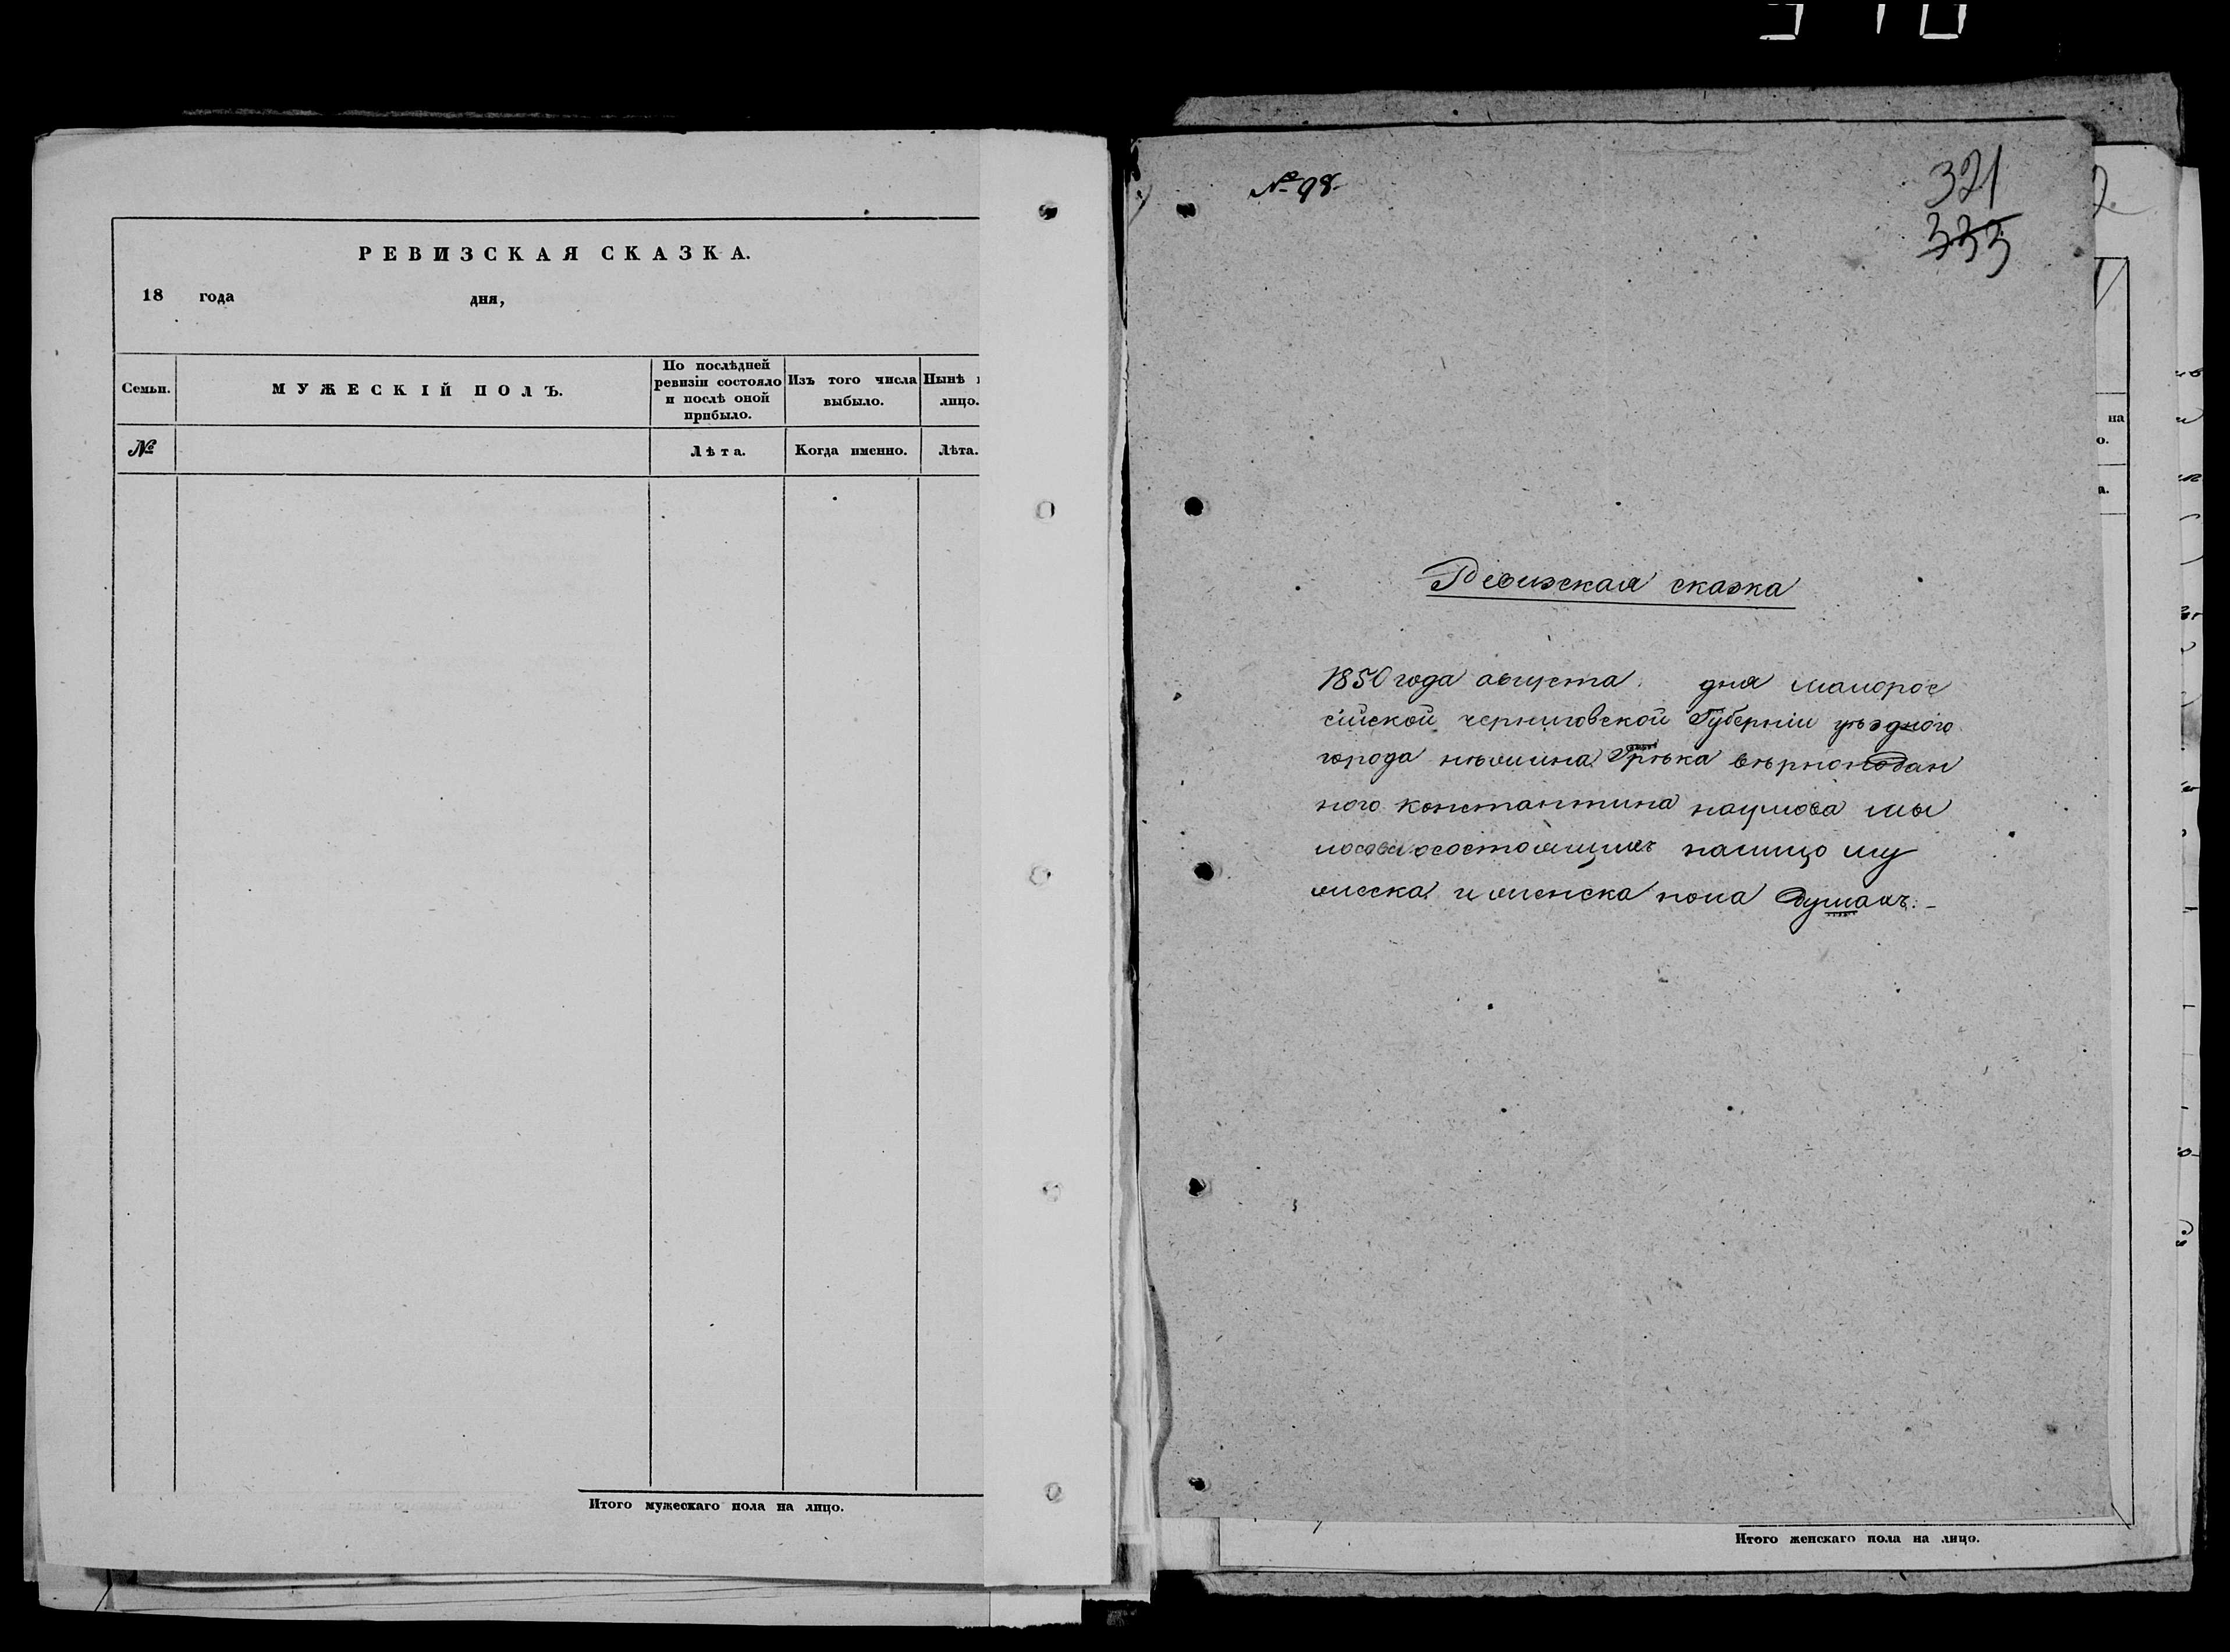 РЕВИЗСКАЯ СКАЗКА.
18 года дня,
Семьи.
МУЖЕСКІЙ ПОЛЪ.
По послѣдней
ревизіи состояло
и послѣ оной
прибыло.
Изъ того числа
выбыло.
Нынѣ
лицо.
№
Лѣта.
Когда именно.
Лѣта.
Итого мужескаго пола на лицо.
№ 98
321
335
Ревизская сказка
1850 года августа дня малорос
сійской черниговской Губерніи уѣздного
города нѣжина Грѣка вѣрноподан
ного константина наумова мы
осостоящихъ налицо му
жеска и женска пола Душахъ.
на
о.
а.
Итого женскаго пола на лицо.